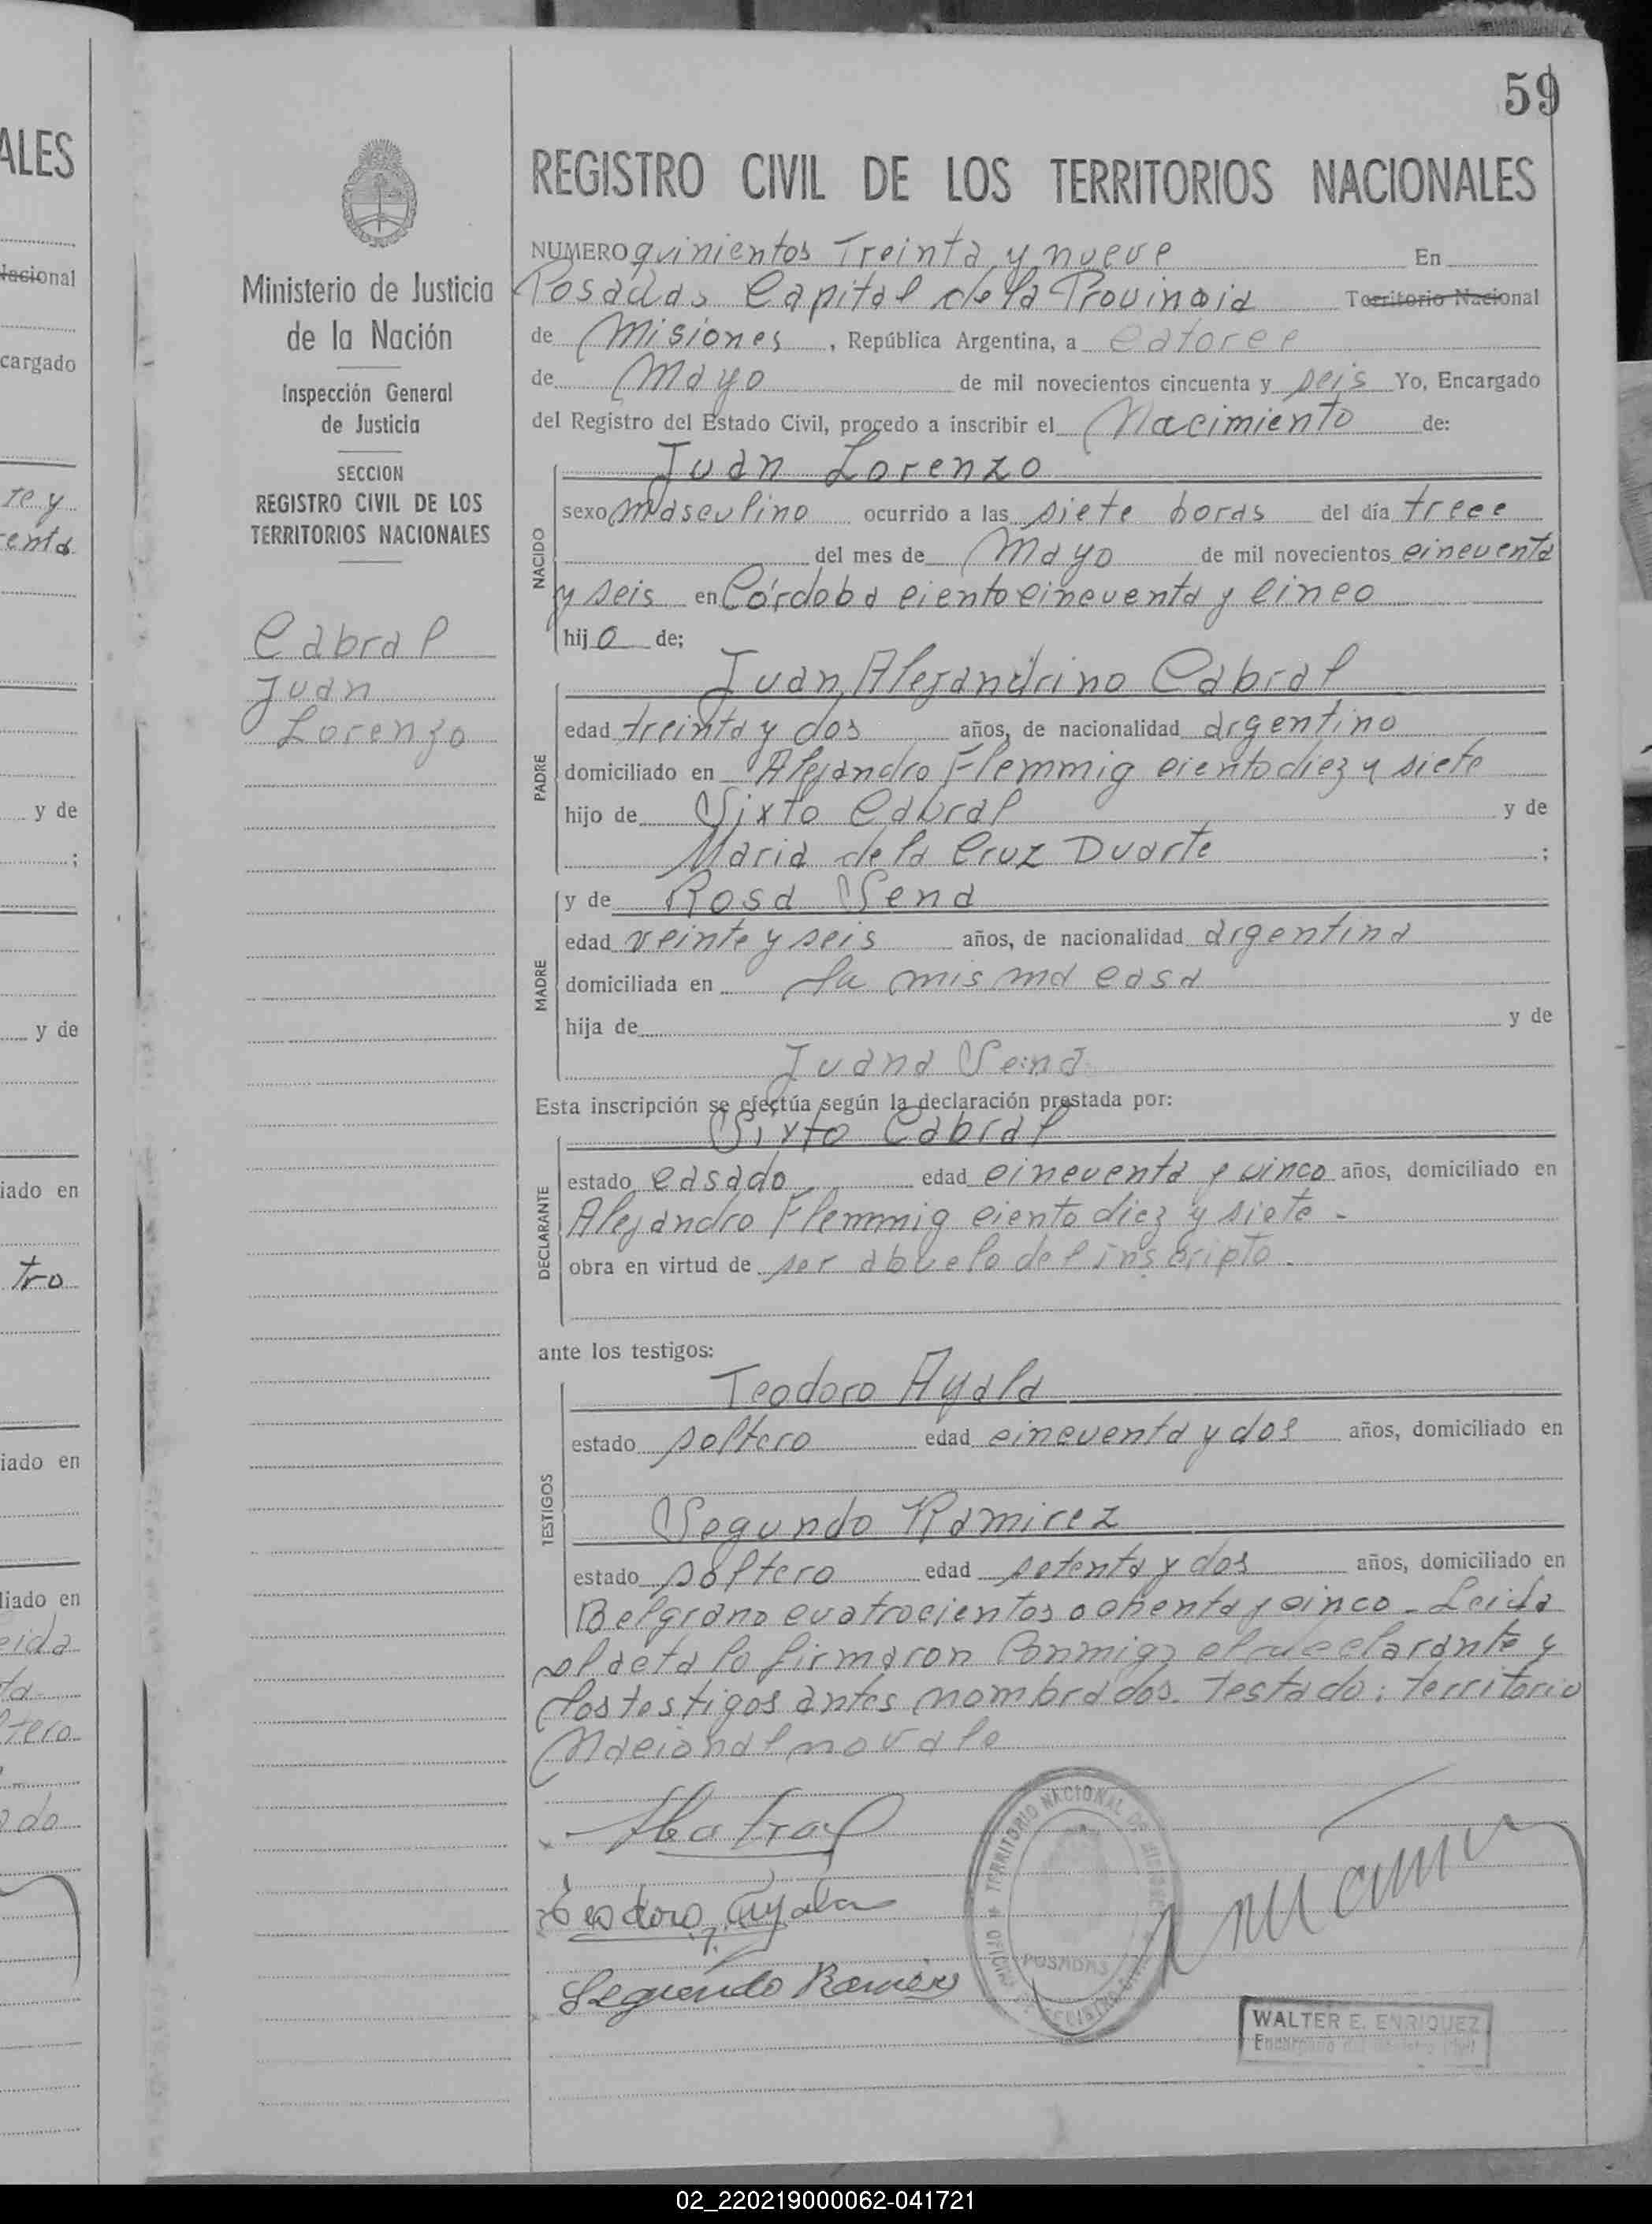 59
ALES
REGISTRO CIVIL DE LOS TERRITORIOS NACIONALES
Ministerio de Justicia
de la Nación
Inspección General
de Justicia
SECCION
REGISTRO CIVIL DE LOS
TERRITORIOS NACIONALES
Cabral
Juan
Lorenzo
NUMERO quinientos Treinta y nueve En
Posadas Capital de la Provincia Territorio Nacional
de Misiones, República Argentina, a catorce
de Mayo de mil novecientos cincuenta y seis Yo, Encargado
del Registro del Estado Civil, procedo a inscribir el Nacimiento de:
NACIDO
Juan Lorenzo
sexo masculino ocurrido a las siete horas del día trece
del mes de Mayo de mil novecientos cincuenta
y seis en Córdoba ciento cincuenta y cinco
hijo de;
PADRE
Juan Alejandrino Cabral
edad treinta y dos años, de nacionalidad argentino
domiciliado en Alejandro Flemmig ciento diez y siete
hijo de Sixto Cabral y de
Maria de la Cruz Duarte ;
MADRE
y de Rosa Sena
edad veinte y seis años, de nacionalidad argentina
domiciliada en la misma casa
hija de y de
Juana Sena
Esta inscripción se efectúa según la declaración prestada por:
DECLARANTE
Sixto Cabral
estado casado edad cincuenta y cinco años, domiciliado en
Alejandro Flemmig ciento diez y siete -
obra en virtud de ser abuelo del inscripto.
ante los testigos:
TESTIGOS
Teodoro Ayala
estado soltero edad cincuenta y dos años, domiciliado en
Segundo Ramirez
estado soltero edad setenta y dos años, domiciliado en
Belgrano cuatrocientos ochenta y cinco - Leida
el acta la firmaron conmigo el declarante y
los testigos antes nombrados. Testado: territorio
Nacional no vale
Teodoro Ayala
Segundo Ramirez
TERRITORIO NACIONAL DE MISIONES
POSADAS
WALTER E. ENRIQUEZ
Encargado del Registro Civil
02_220219000062-041721